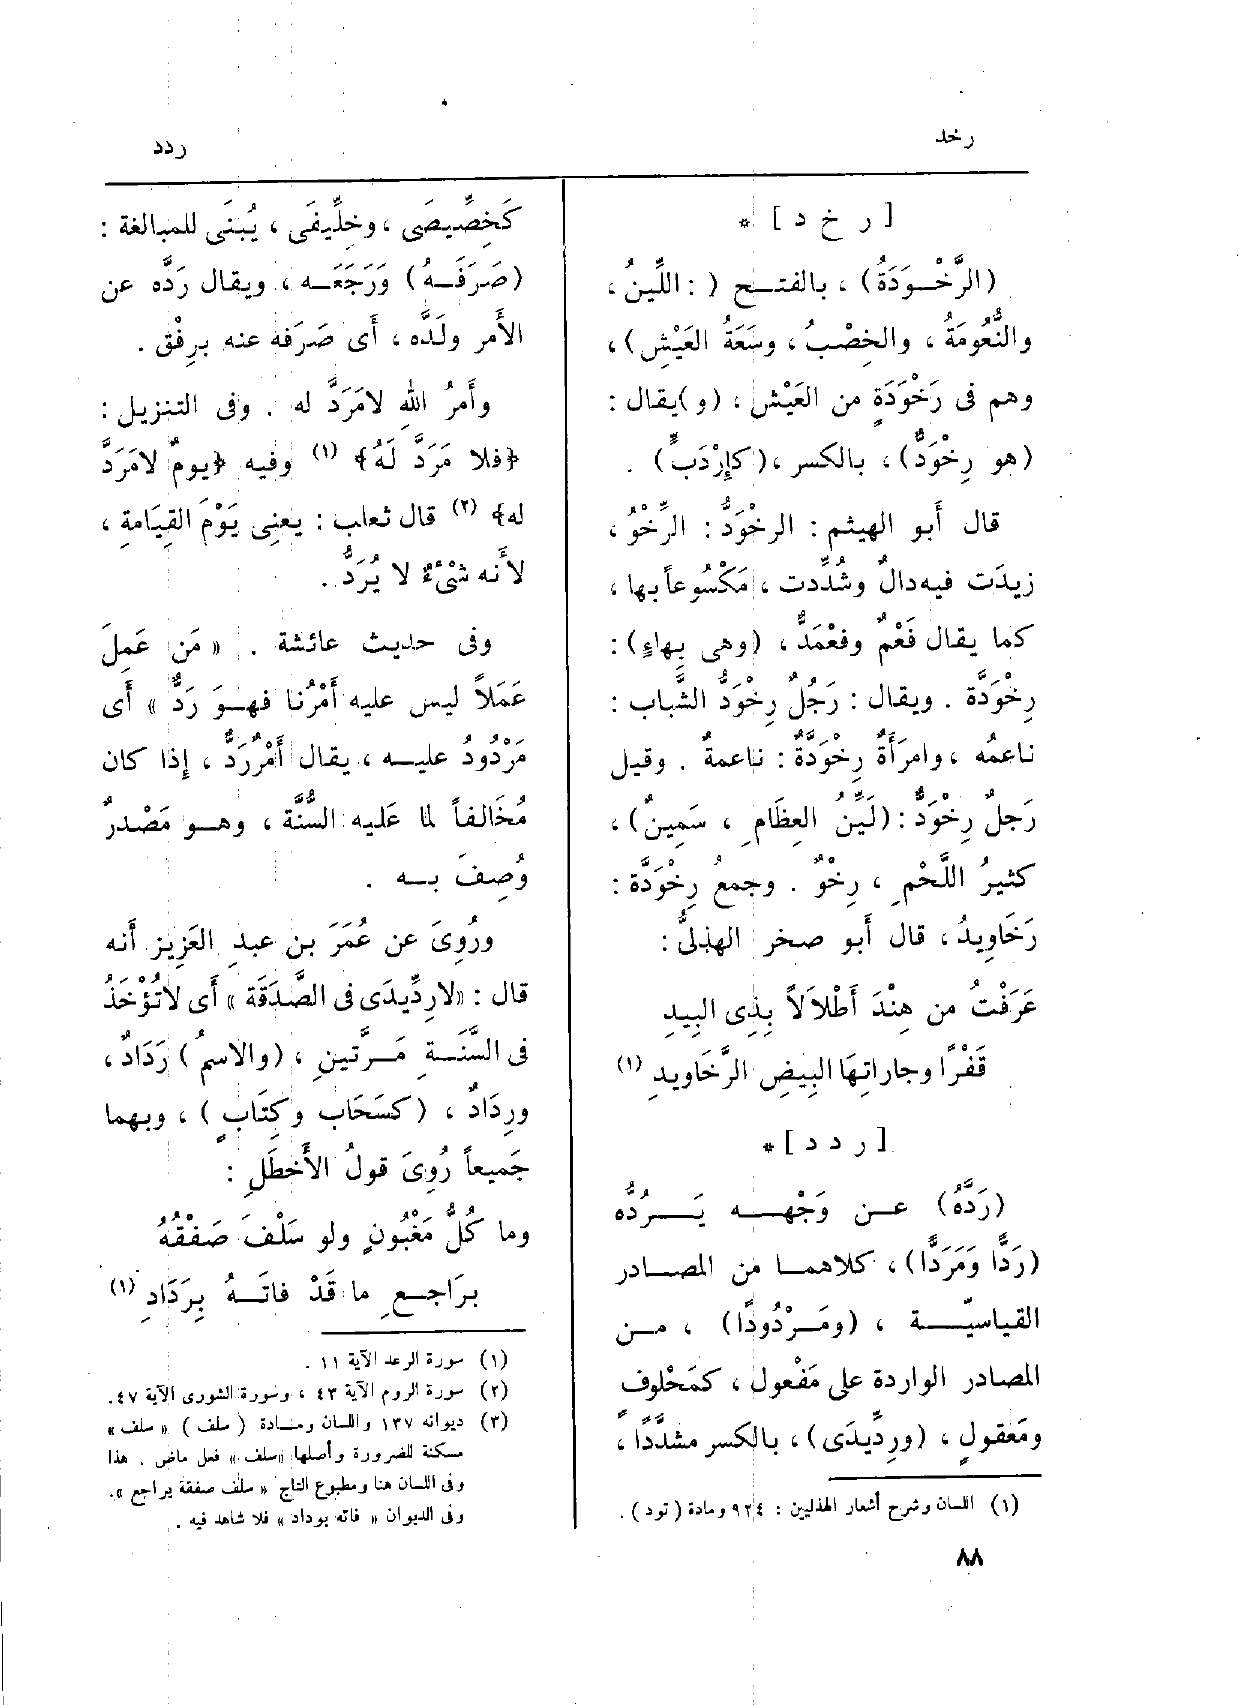 رخد
ردد
[ ر خ د ] *
(الرَّخْـوَدَةُ) ، بالفتـح ( : اللِّينُ ،
والنُّعُومَةُ ، والخِصْبُ ، وسَعَةُ العَيْشِ) ،
وهم فى رَخْوَدَةٍ من العَيْشِ ، (و)يقال :
(هو رِخْوَدٌّ) ، بالكسر ، (كإِرْدَبٍّ) .
قال أَبو الهيثم : الرخْوَدُّ : الرِّخْوُ ،
زيدَت فيه دالٌ وشُدِّدت ، مَكْسُوعاً بها ،
كما يقال فَعْمٌ وفَعْمَدٌّ ، (وهى بِهاءٍ) :
رِخْوَدَّة . ويقال : رَجُلٌ رِخْوَدُّ الشَّباب :
ناعمُه ، وامرَأَةٌ رِخْوَدَّةٌ : ناعمةٌ . وقيل
رَجلٌ رِخْوَدٌّ : (لَيِّنُ العِظَامِ ، سَمِينٌ) ،
كثيرُ اللَّحْمِ ، رِخْوٌ . وجمعُ رِخْوَدَّة :
رَخَاوِيدُ ، قال أَبو صخر الهذلىُّ :
عَرَفْتُ من هِنْدَ أَطْلاَلاً بِذِى البِيدِ
قَفْرًا وجاراتِهَا البِيضِ الرَّخَاوِيدِ (١)
[ ر د د ] *
(رَدَّهُ) عـن وَجْهـه يَـرُدُّه
(رَدًّا وَمَرَدًّا) ، كلاهمـا من المصـادر
القياسيّـة ، (ومَـرْدُودًا) ، مـن
المصادر الواردة على مَفْعول ، كمَحْلوفٍ
ومَعْقولٍ ، (ورِدِّيدَى) ، بالكسر مشدَّداً ،
(١) اللسان وشرح أشعار الهذليين : ٩٢٤ ومادة (تود) .
٨٨
كَخِصِّيصَى ، وخِلِّيفَى ، يُبنَى للمبالغة :
(صَرَفَـهُ) وَرَجَعَـه ، ويقال رَدَّه عن
الأَمر ولَدَّه ، أَى صَرَفه عنه برِفْق .
وأَمرُ اللهِ لامَرَدَّ له . وفى التنزيل :
﴿فلا مَرَدَّ لَهُ﴾ (١) وفيه ﴿يومٌ لامَرَدَّ
له﴾ (٢) قال ثعلب : يعنِى يَوْمَ القِيَامةِ ،
لأَنه شىْءٌ لا يُرَدُّ .
وفى حديث عائشة . « مَن عَمِلَ
عَمَلاً ليس عليه أَمْرُنا فهـوَ رَدٌّ » أَى
مَرْدُودٌ عليـه ، يقال أَمْرٌرَدٌّ ، إِذا كان
مُخَالفاً لما عَليه السُّنَّة ، وهـو مَصْدرٌ
وُصِفَ بـه .
ورُوِىَ عن عُمَرَ بن عبدِ العَزِيز أَنه
قال : «لارِدِّيدَى فى الصَّدَقَة» أَى لاتُؤْخَذُ
فى السَّنَـةِ مَـرَّتينِ ، (والاسمُ) رَدَادٌ ،
ورِدَادٌ ، (كسَحَاب وكِتَابٍ) ، وبهما
جَميعاً رُوِىَ قولُ الأَخطَلِ :
وما كُلُّ مَغْبُونٍ ولو سَلْفَ صَفْقُهُ
برَاجـعِ ما قَدْ فاتَـهُ بِرَدَادِ (١)
(١) سورة الرعد الآية ١١ .
(٢) سورة الروم الآية ٤٣ ، وسورة الشورى الآية ٤٧.
(٣) ديوانه ١٣٧ واللسان ومـادة ( سلف ) « سلف »
مسكنة للضرورة وأصلها «سلف» فعل ماض . هذا
وفى اللسان هنا ومطبوع التاج « سلف صفقة يراجع ».
وفى الديوان « فاته بوداد » فلا شاهد فيه .